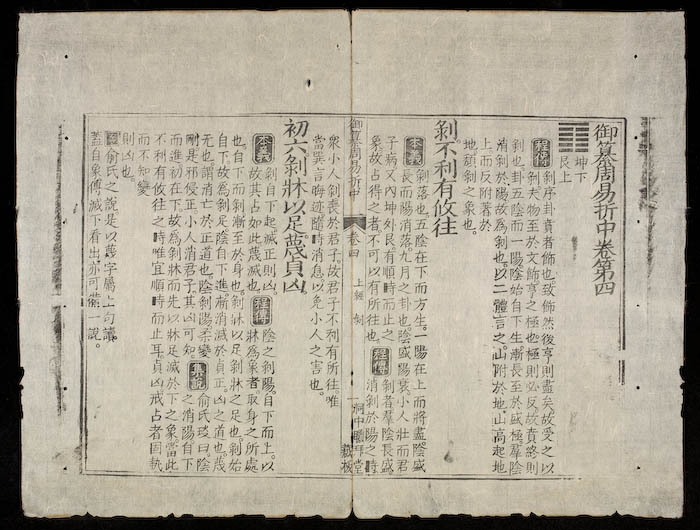 御纂周易折中卷第四
坤下
艮上
程傳剝序卦賁者飾也致飾然後亨則盡矣故受之以
剝夫物至於文飾亨之極也極則必反故賁終則
剝也卦五陰而一陽陰始自下生漸長至於盛極羣陰
消剝於陽故為剝也以二體言之山附於地山高起地
上而反附著於
地頹剝之象也
剝不利有攸往
本義剝落也五陰在下而方生一陽在上而將盡陰盛
長而陽消落九月之卦也陰盛陽衰小人壯而君
子病又內坤外艮有順時而止之
象故占得之者不可以有所往也
程傳剝者羣陰長盛
消剝於陽之時
御纂周易折中
卷四
上經 剝
一
洞中䫫拜堂
藏板
衆小人剝喪於君子故君子不利有所往唯
當巽言晦迹隨時消息以免小人之害也
初六剝牀以足蔑貞凶
本義剝自下起滅正則凶
故其占如此蔑滅也
程傳陰之剝陽自下而上以
牀為象者取身之所處
也自下而剝漸至於身也剝牀以足剝牀之足也剝始
自下故為剝足陰自下進漸消滅於貞正凶之道也蔑
无也謂消亡於正道也陰剝陽柔變
剛是邪侵正小人消君子其凶可知
集說俞氏琰曰陰
之消陽自下
而進初在下故為剝牀而先以牀足滅於下之象當此
不利有攸往之時唯宜順時而止耳貞凶戒占者固執
而不知變
則凶也
案俞氏之說是以蔑字屬上句讀
蓋自象傳滅下看出亦可備一說